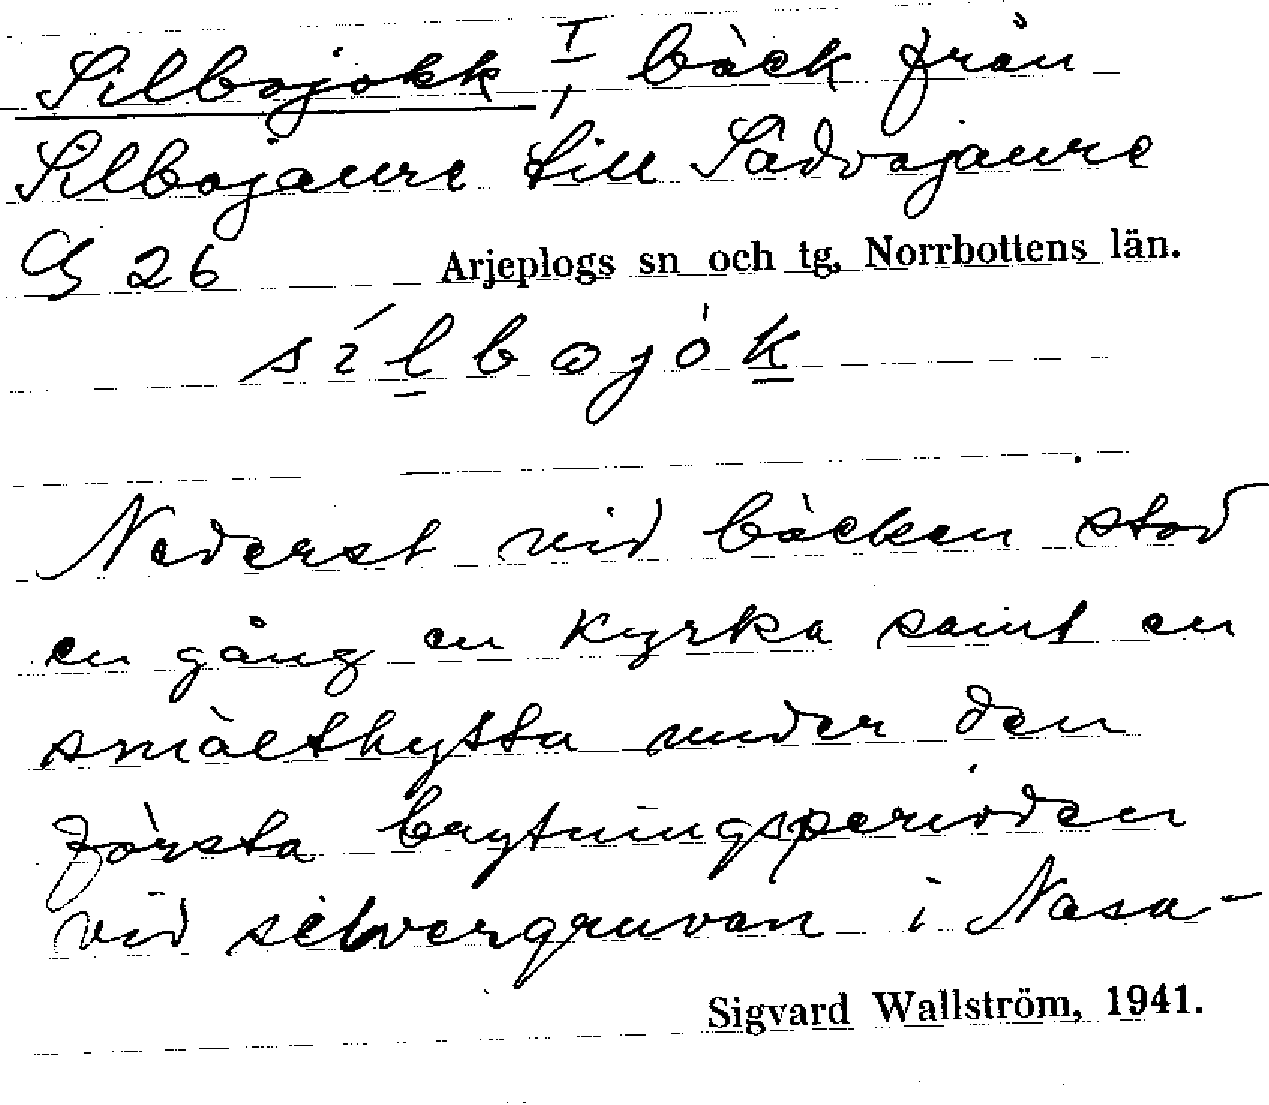 Silbojokk I, bäck från
Silbojaure till Sädvajaure
G 26 Arjeplogs sn och tg, Norrbottens län.
sílbojók
Nederst vid bäcken stod
en gång en kyrka samt en
smälthytta under den
första brytningsperioden
vid silvergruvan i Nasa-
Sigvard Wallström, 1941.